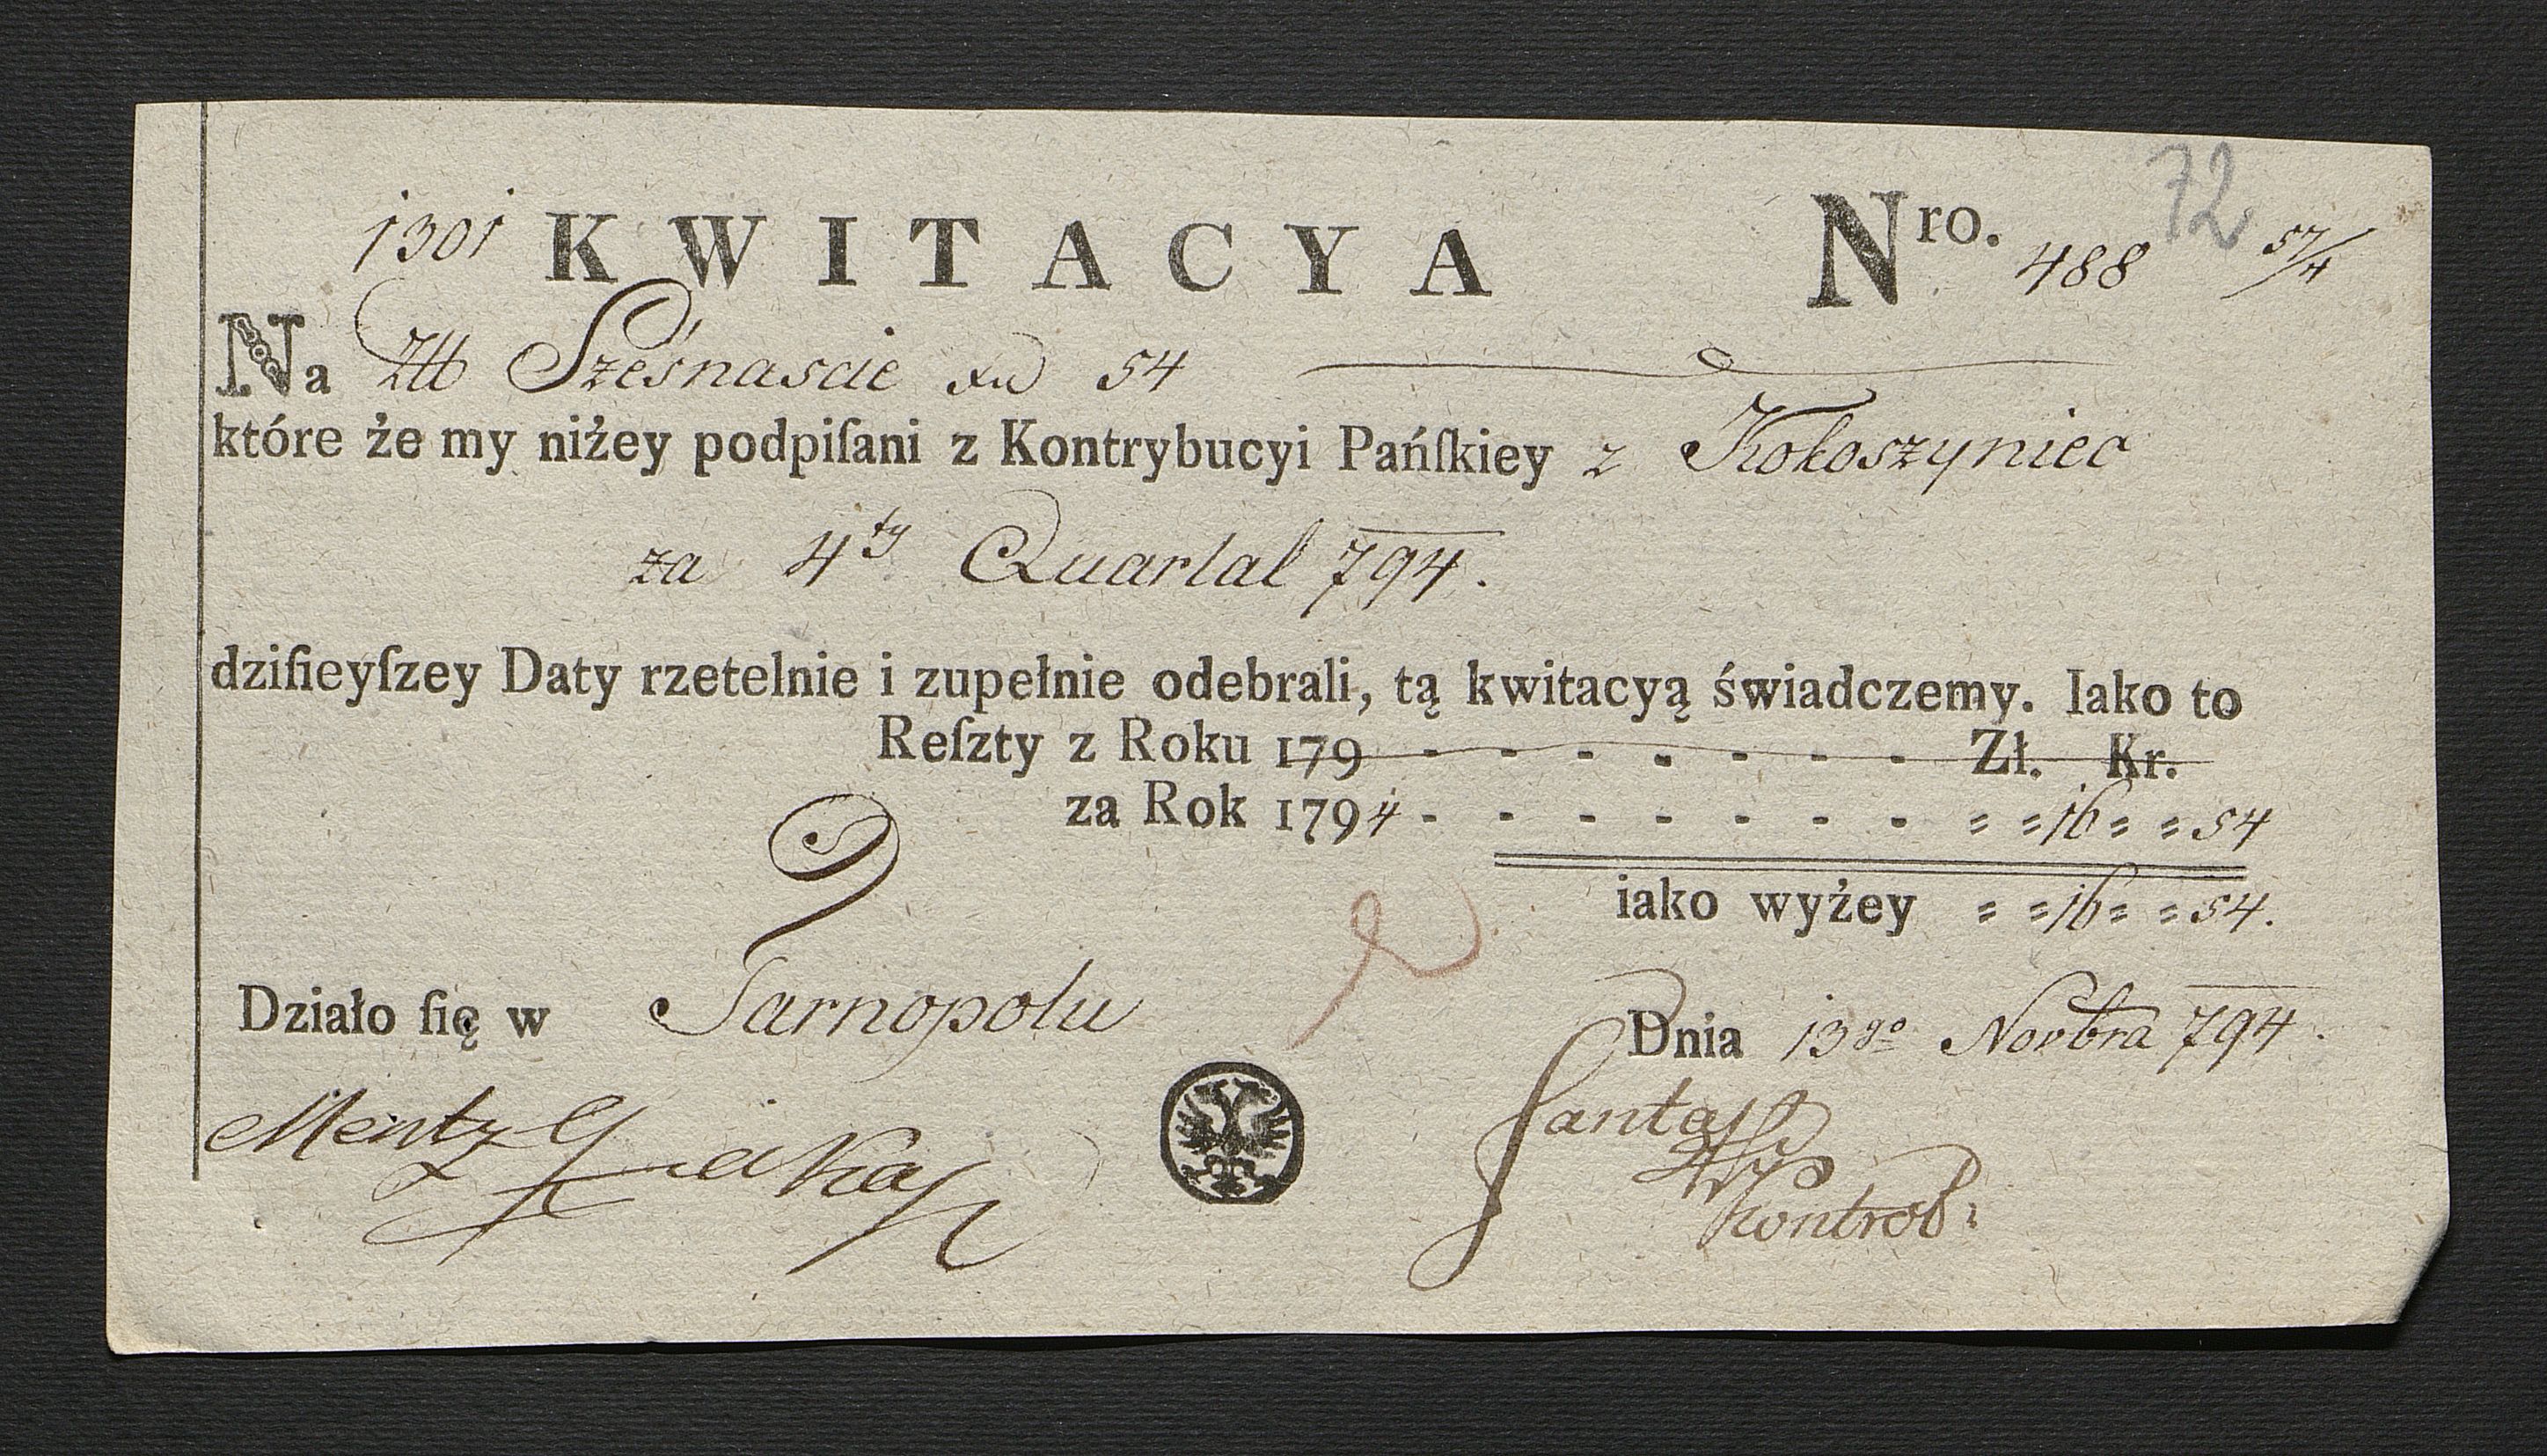 72
1301 KWITACYA Nro. 488 57/4
Na Złł Sześnascie xu 54
które że my niżey podpiſani z Kontrybucyi Pańſkiey z Kołoszyniec
za 4ty Quartal 794.
dziſieyſzey Daty rzetelnie i zupełnie odebrali, tą kwitacyą świadczemy. Iako to
Reſzty z Roku 179 - - - - - - - Zł. Kr.
za Rok 1794 - - - - - - - = = 16 = = 54
iako wyżey = = 16 = = 54.
Działo ſię w Tarnopolu
Dnia 13go Novbra 794.
Mentz
Kontrol: